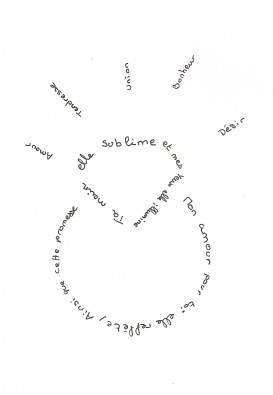 Amour
Tendresse
union
Bonheur
Désir
Ta main elle sublime et mes yeux elle illumine
Mon amour pour toi elle reflète, Ainsi que cette promesse